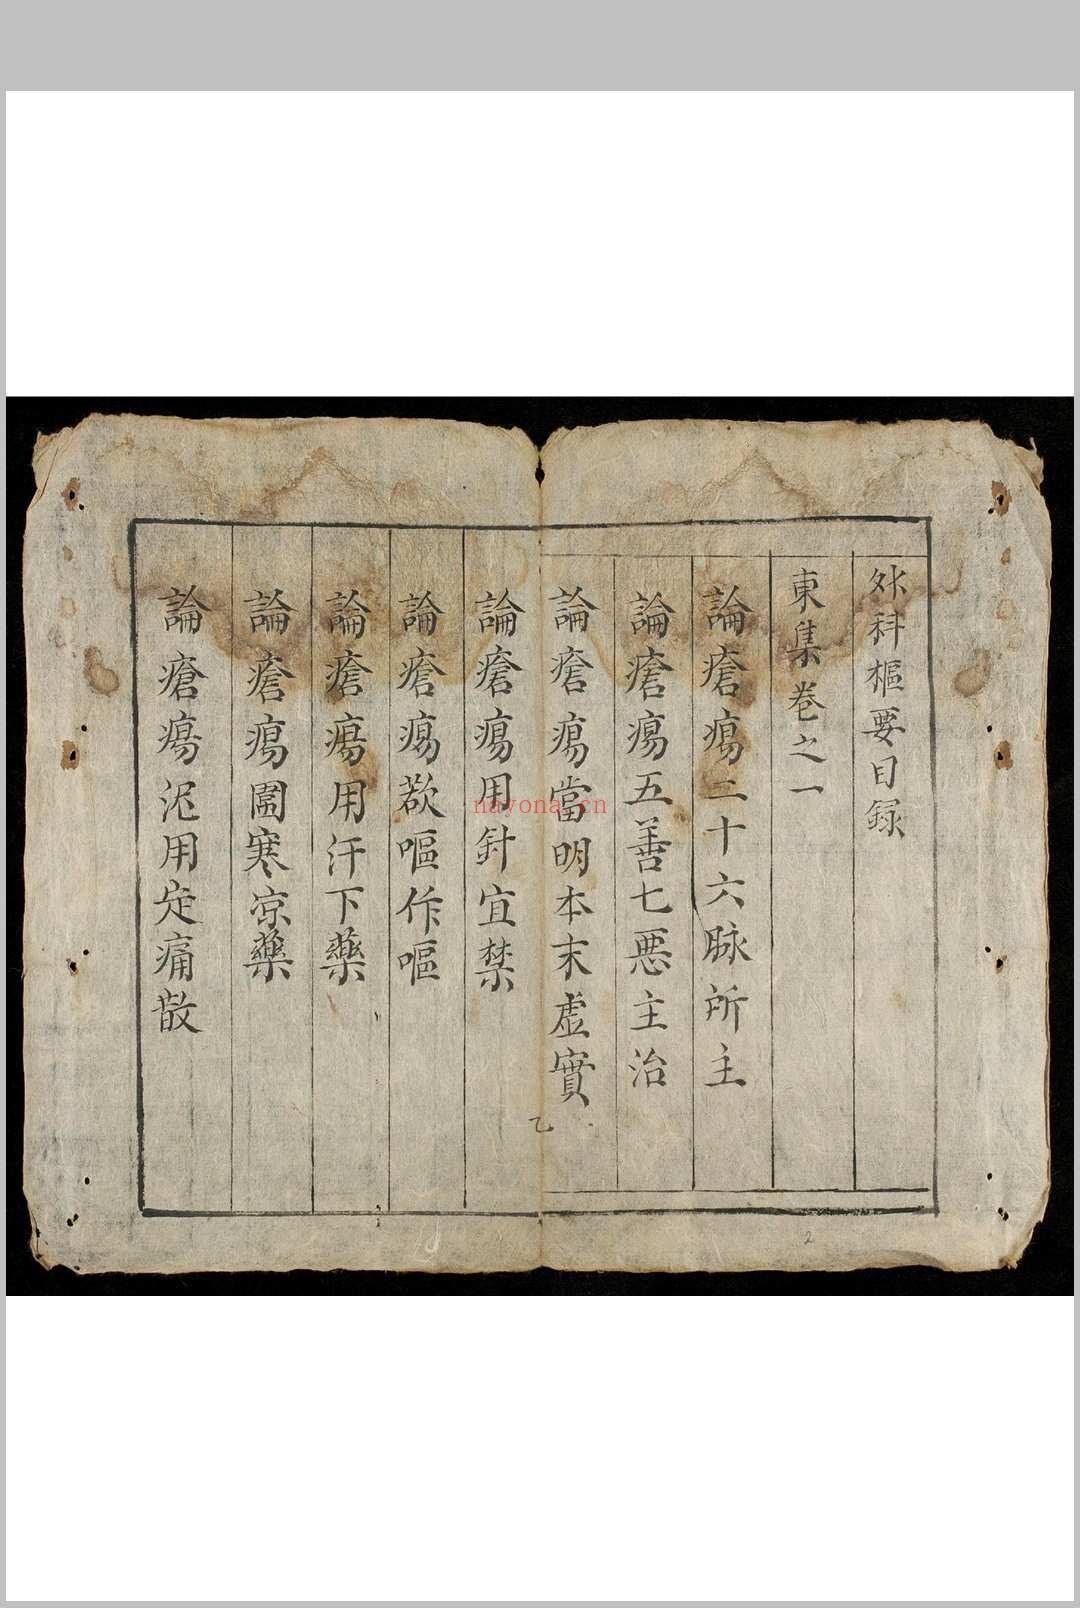 外科樞要目録
東集卷之一
論瘡瘍二十六脉所主
論瘡瘍五善七惡主治
論瘡瘍當明本末虛實
論瘡瘍用針宜禁
論瘡瘍欲嘔作嘔
論瘡瘍用汗下藥
論瘡瘍圖寒凉藥
論瘡瘍泥用定痛散
乙
2
nayona.cn